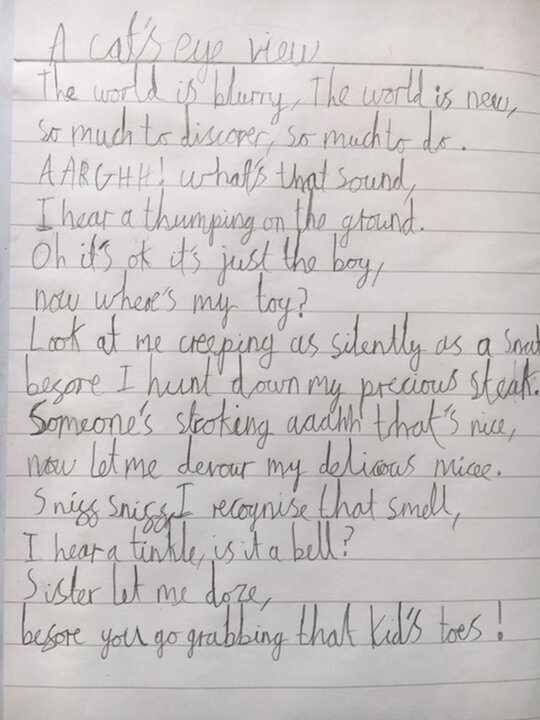 A cat's eye view
The world is blurry, The world is new,
so much to discover, so much to do.
AARGHH! what's that sound,
I hear a thumping on the ground.
Oh it's ok it's just the boy,
now where's my toy?
Look at me creeping as silently as a
before I hunt down my precious steak.
Someone's stroking aaahh that's nice,
now let me devour my delicious micee.
Sniff Sniff, I recognise that smell,
I hear a tinkle, is it a bell?
Sister let me doze,
before you go grabbing that kid's toes!